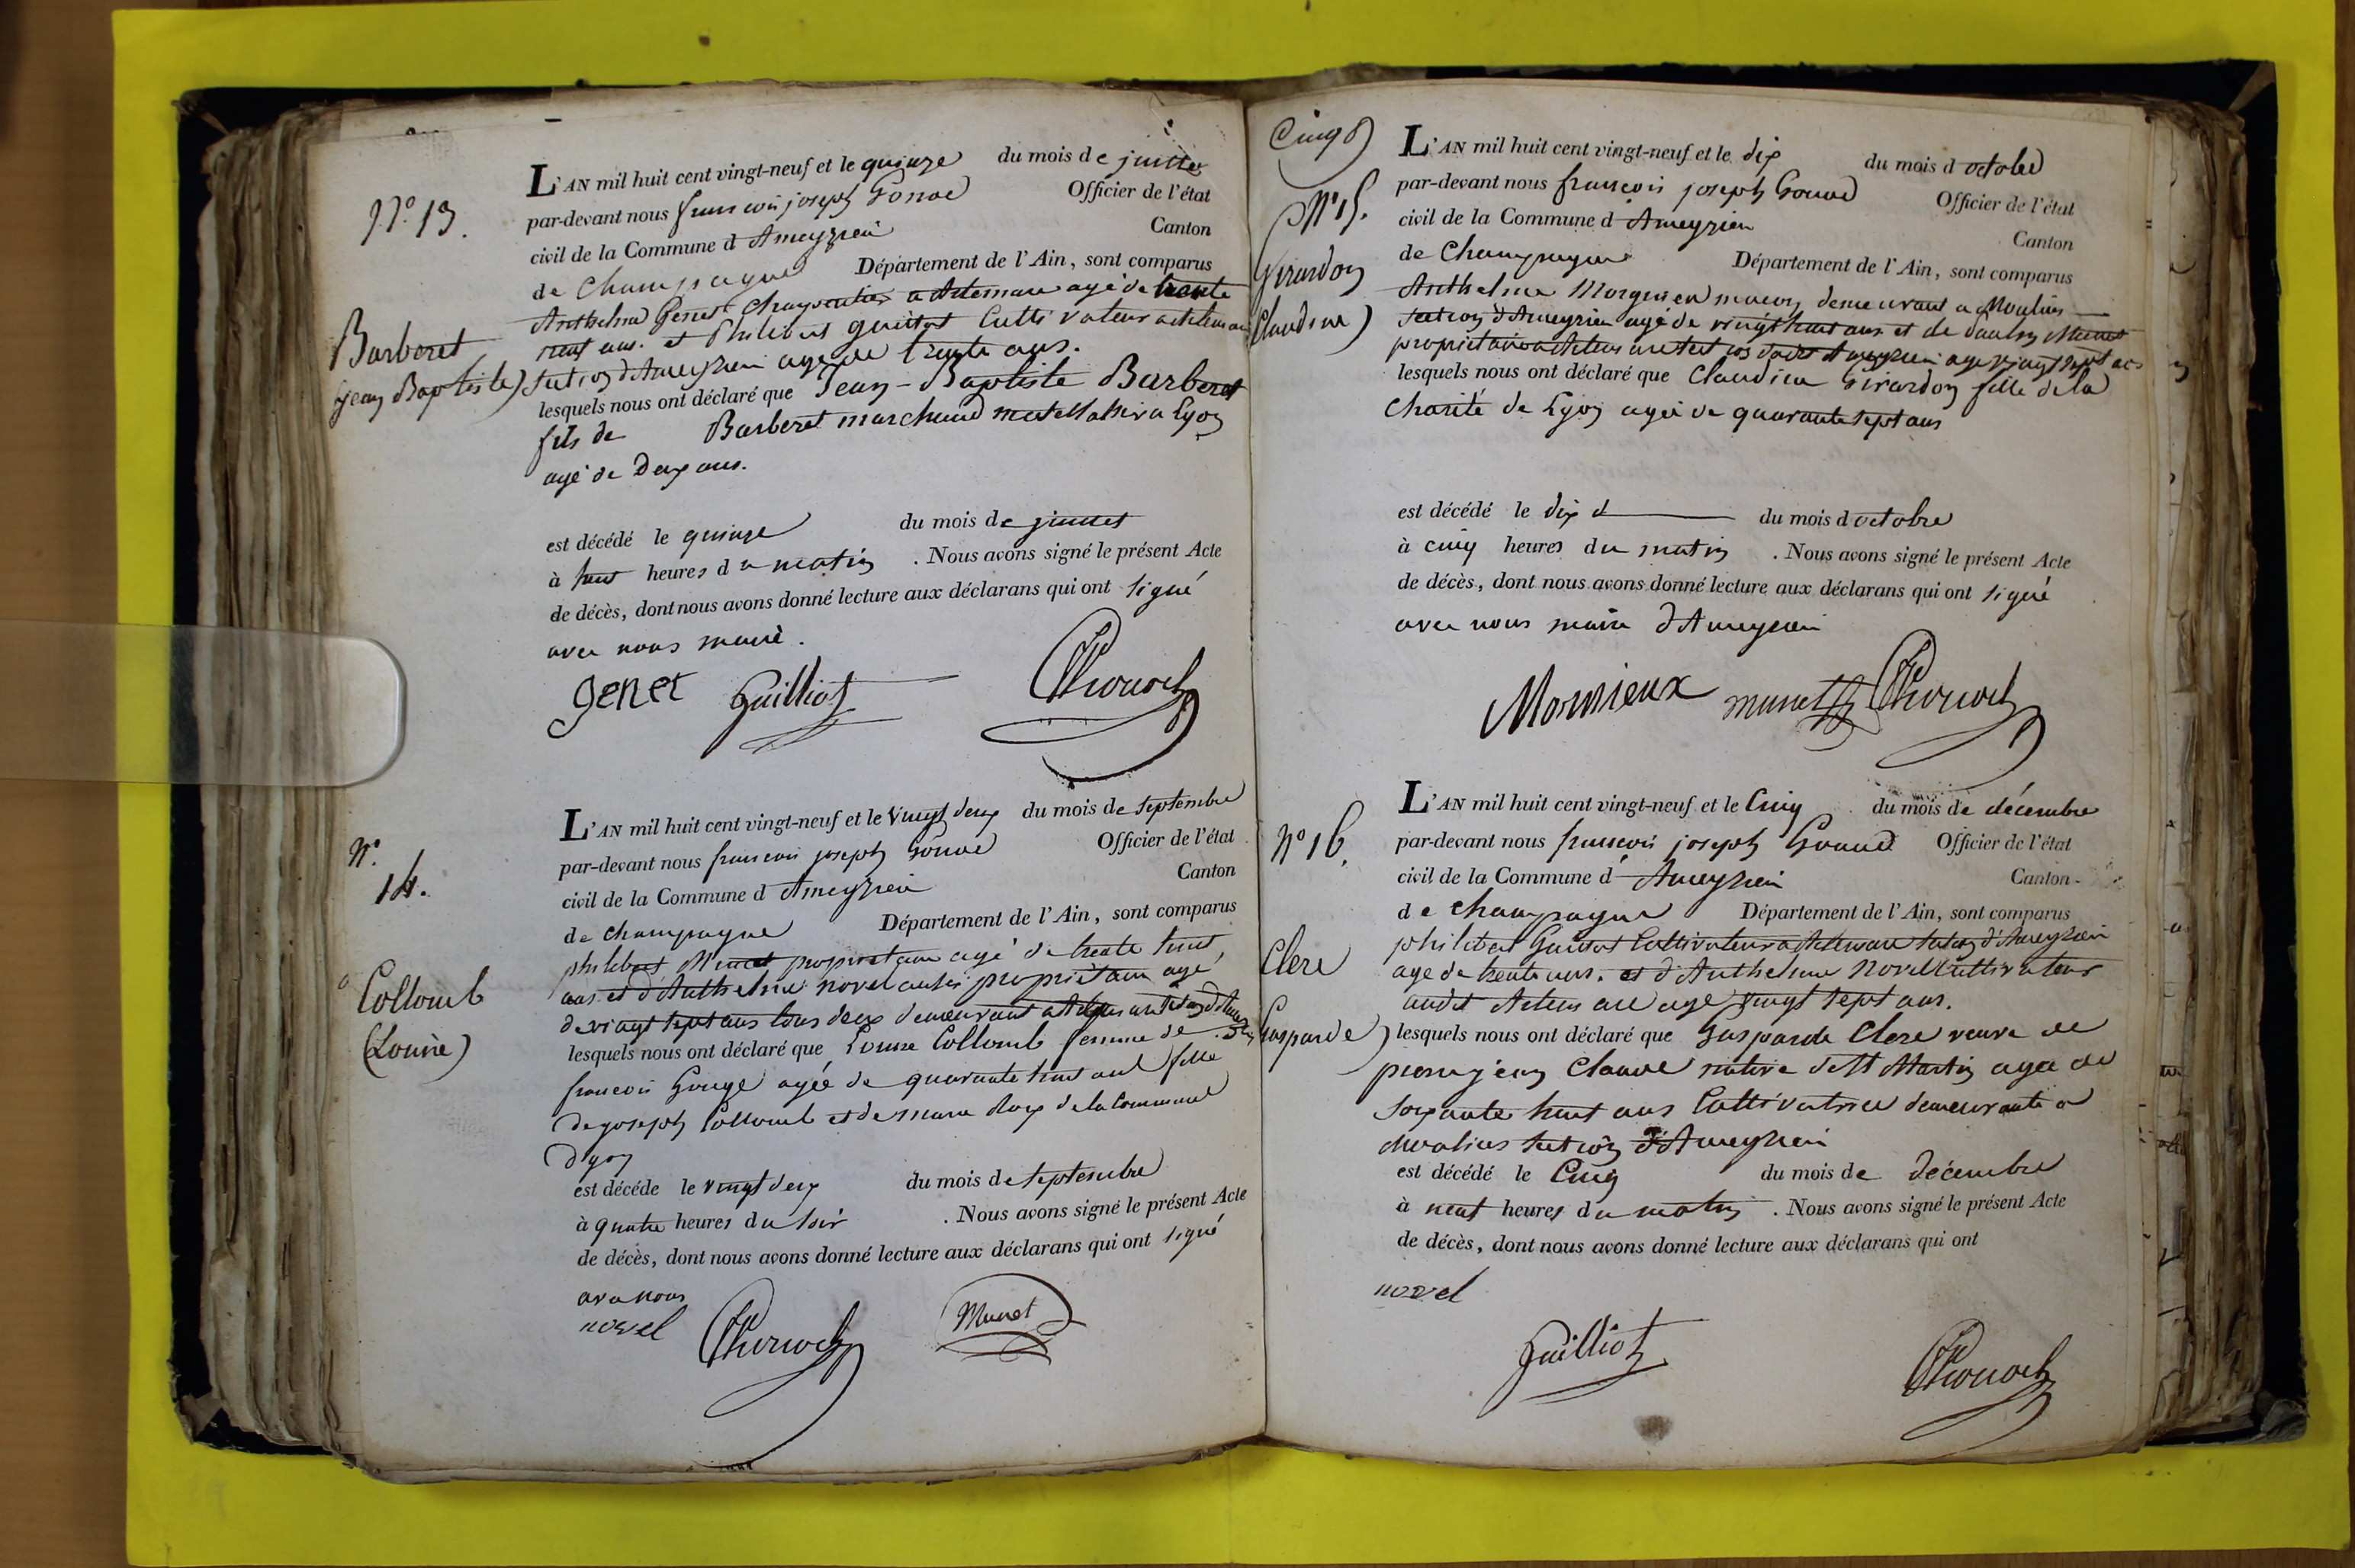 N.° 13.
L'AN mil huit cent vingt-neuf et le quinze du mois de juillet
par-devant nous francois joseph Officier de l'état
civil de la Commune d'Ameyzieu Canton
de Champagne Département de l'Ain, sont comparus
Anthelme Genet Charpentier a Artemare agé de trente
neuf ans. et Philibert guilliot Cultivateur a artemare
Barberet
(jean Baptiste)
section d'Ameyzieu agé de trente ans.
lesquels nous ont déclaré que Jean-Baptiste Barberet
fils de Barberet marchand matellassier a Lyon
agé de Deux ans.
est décédé le quinze du mois de juillet
à huit heures du matin . Nous avons signé le présent Acte
de décès, dont nous avons donné lecture aux déclarans qui ont signé
avec nous maire.
genet Guilliot
N.° 14.
L'AN mil huit cent vingt-neuf et le vingt deux du mois de septembre
par-devant nous francois joseph Officier de l'état
civil de la Commune d'Ameyzieu Canton
de champagne Département de l'Ain, sont comparus
philibert Munet propriétaire agé de trente huit
ans. et d'Anthelme novel aussi propriétaire agé
Collomb
(Louise)
de vingt sept ans tous deux demeurant a
lesquels nous ont déclaré que Louise Collomb femme de
francois Gouge agée de quarante huit ans fille
de joseph Collomb et de marie Roux de la Commune
d'yon
est décédé le vingt deux du mois de septembre
à quatre heures du soir . Nous avons signé le présent Acte
de décès, dont nous avons donné lecture aux déclarans qui ont signé
avec nous
novel Munet
N° 15.
L'AN mil huit cent vingt-neuf et le dix du mois d'octobre
par-devant nous francois joseph Officier de l'état
civil de la Commune d'Ameyzieu Canton
de Champagne Département de l'Ain, sont comparus
Girardon
(Claudine)
Anthelme macon demeurant a Moulins
section d'Ameyzieu agé de vingt huit ans et de Munet
propriétaire a Artemare section d'Ameyzieu agé vingt sept ans
lesquels nous ont déclaré que Claudine Girardon fille de la
Charité de Lyon agée de quarante sept ans
est décédé le dix d du mois d'octobre
à cinq heures du matin . Nous avons signé le présent Acte
de décès, dont nous avons donné lecture aux déclarans qui ont signé
avec nous maire d'Ameyzieu
munet
N° 16.
L'AN mil huit cent vingt-neuf et le Cinq du mois de décembre
par-devant nous francois joseph Officier de l'état
civil de la Commune d'Ameyzieu Canton
de champagne Département de l'Ain, sont comparus
philibert Guilliot Cultivateur a Artemare section d'Ameyzieu
Clere
(Gasparde)
age de trente ans. et d'Anthelme Novel Cultivateur
audit Artemare age vingt sept ans.
lesquels nous ont déclaré que Gasparde Clere veuve de
pierre jean Claude native de St Martin agée de
soixante huit ans Cultivatrice demeurante a
section d'Ameyzieu
est décédé le Cinq du mois de décembre
à neuf heures du matin . Nous avons signé le présent Acte
de décès, dont nous avons donné lecture aux déclarans qui ont
novel
Guilliot